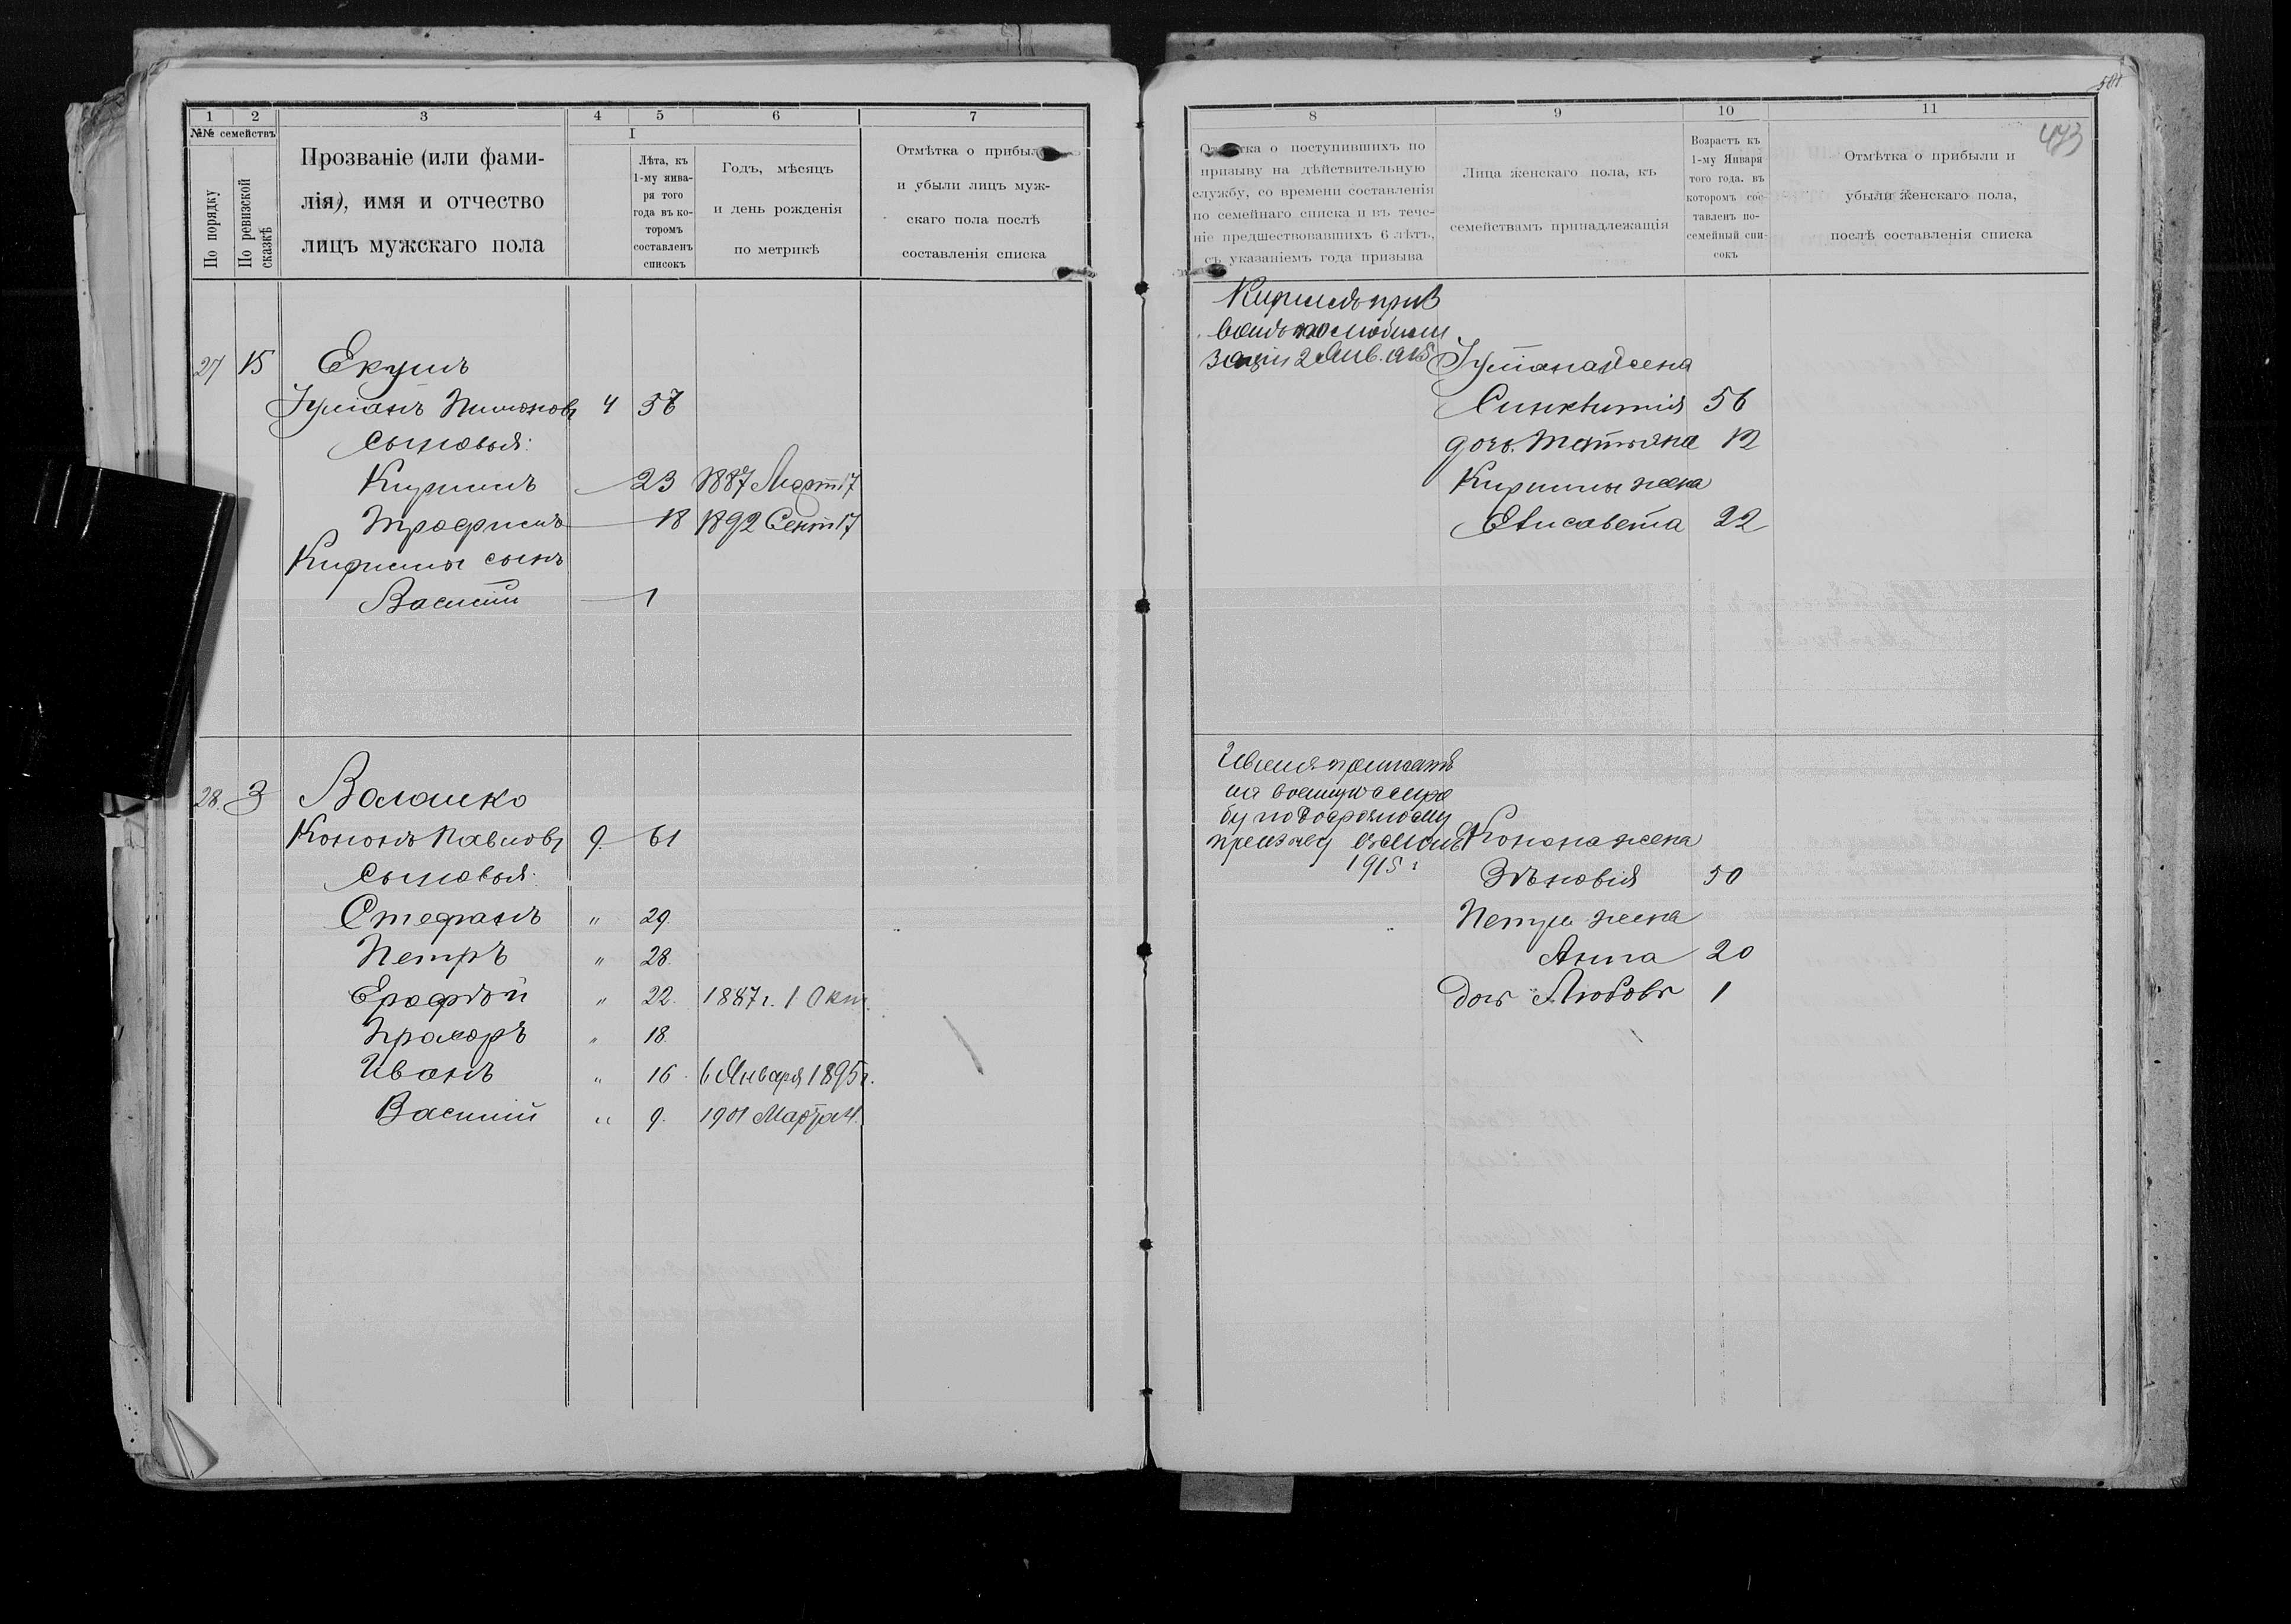 1 2 3 4 5 6 7
№№ семействъ
По порядку
По ревизской сказкѣ
Прозваніе (или фами-
лія), имя и отчество
лицъ мужскаго пола
I
Лѣта, къ
1-му янва-
ря того
года въ ко-
торомъ
составленъ
списокъ
Годъ, мѣсяцъ
и день рожденія
по метрикѣ
Отмѣтка о прибыли
и убыли лицъ муж-
скаго пола послѣ
составленія списка
27 15 Екумъ
4 57
Сыновья:
Кирилъ 23 1887 Март 17
Трофимъ 18 1892 Сент 17
Кирилы сынъ
Василій 1
28. 3 Волошко
Кононъ Павловъ 9. 61
Сыновья:
Стефанъ " 29.
Петръ " 28.
Ерофѣй " 22. 1887 г. 1 Окт.
Прохоръ " 18.
Иванъ " 16 6 Января 1895 г.
Василій " 9. 1901 Марта 4.
8 9 10 11
473
Отмѣтка о поступившихъ по
призыву на дѣйствительную
службу, со времени составленія
по семейнаго списка и въ тече-
ніе предшествовавшихъ 6 лѣтъ,
съ указаніемъ года призыва
Лица женскаго пола, къ
семействамъ принадлежащія
Возрастъ къ
1-му Января
того года. въ
которомъ сос-
тавленъ по-
семейный спи-
сокъ
Отмѣтка о прибыли и
убыли женскаго пола,
послѣ составленія списка
Кирилъ приз
ванъ по мобили
заціи 2 Янв. 1915
жена
Синклитія 56
дочь Татьяна 12
Кирилы жена
Елисавета 22
Иванъ принятъ
на военную служ
бу по досрочному
призыву
1915 г
Конона жена
Зѣновія 50
Петра жена
Анна 20
дочь Любовь 1